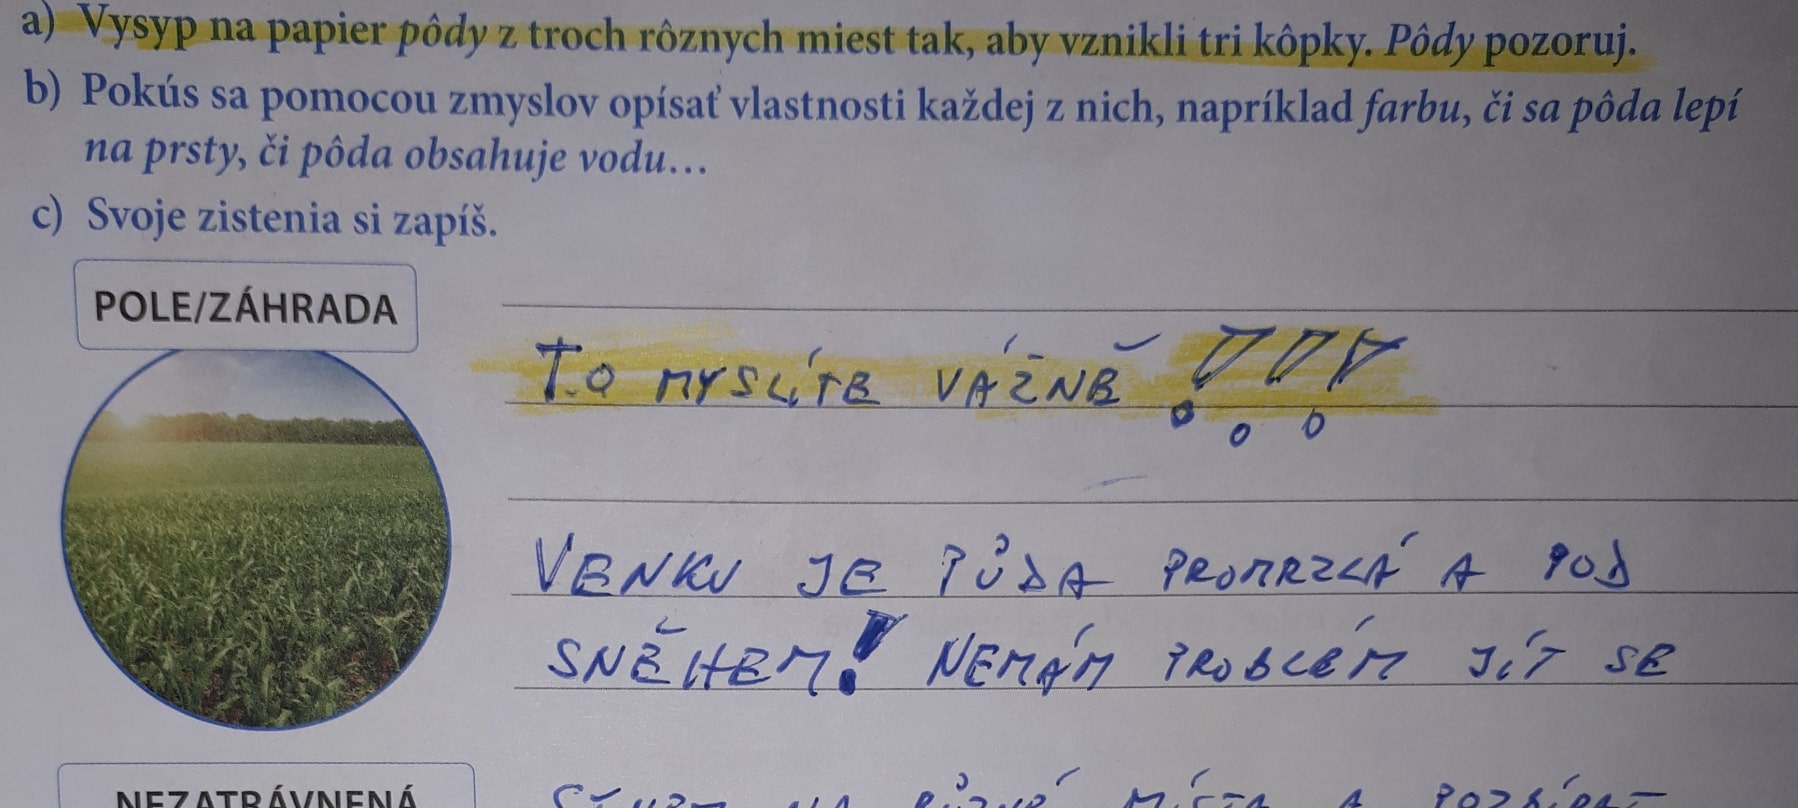 a) Vysyp na papier pôdy z troch rôznych miest tak, aby vznikli tri kôpky. Pôdy pozoruj.
b) Pokús sa pomocou zmyslov opísať vlastnosti každej z nich, napríklad farbu, či sa pôda lepí
na prsty, či pôda obsahuje vodu...
c) Svoje zistenia si zapíš.
POLE/ZÁHRADA
TO MYSLÍTE VÁŽNĚ !!!
VENKU JE PŮDA PROMRZLÁ A POD
SNĚHEM! NEMÁM PROBLÉM JÍT SE
NEZATRÁVNENÁ
NA RŮZNÁ MÍSTA A